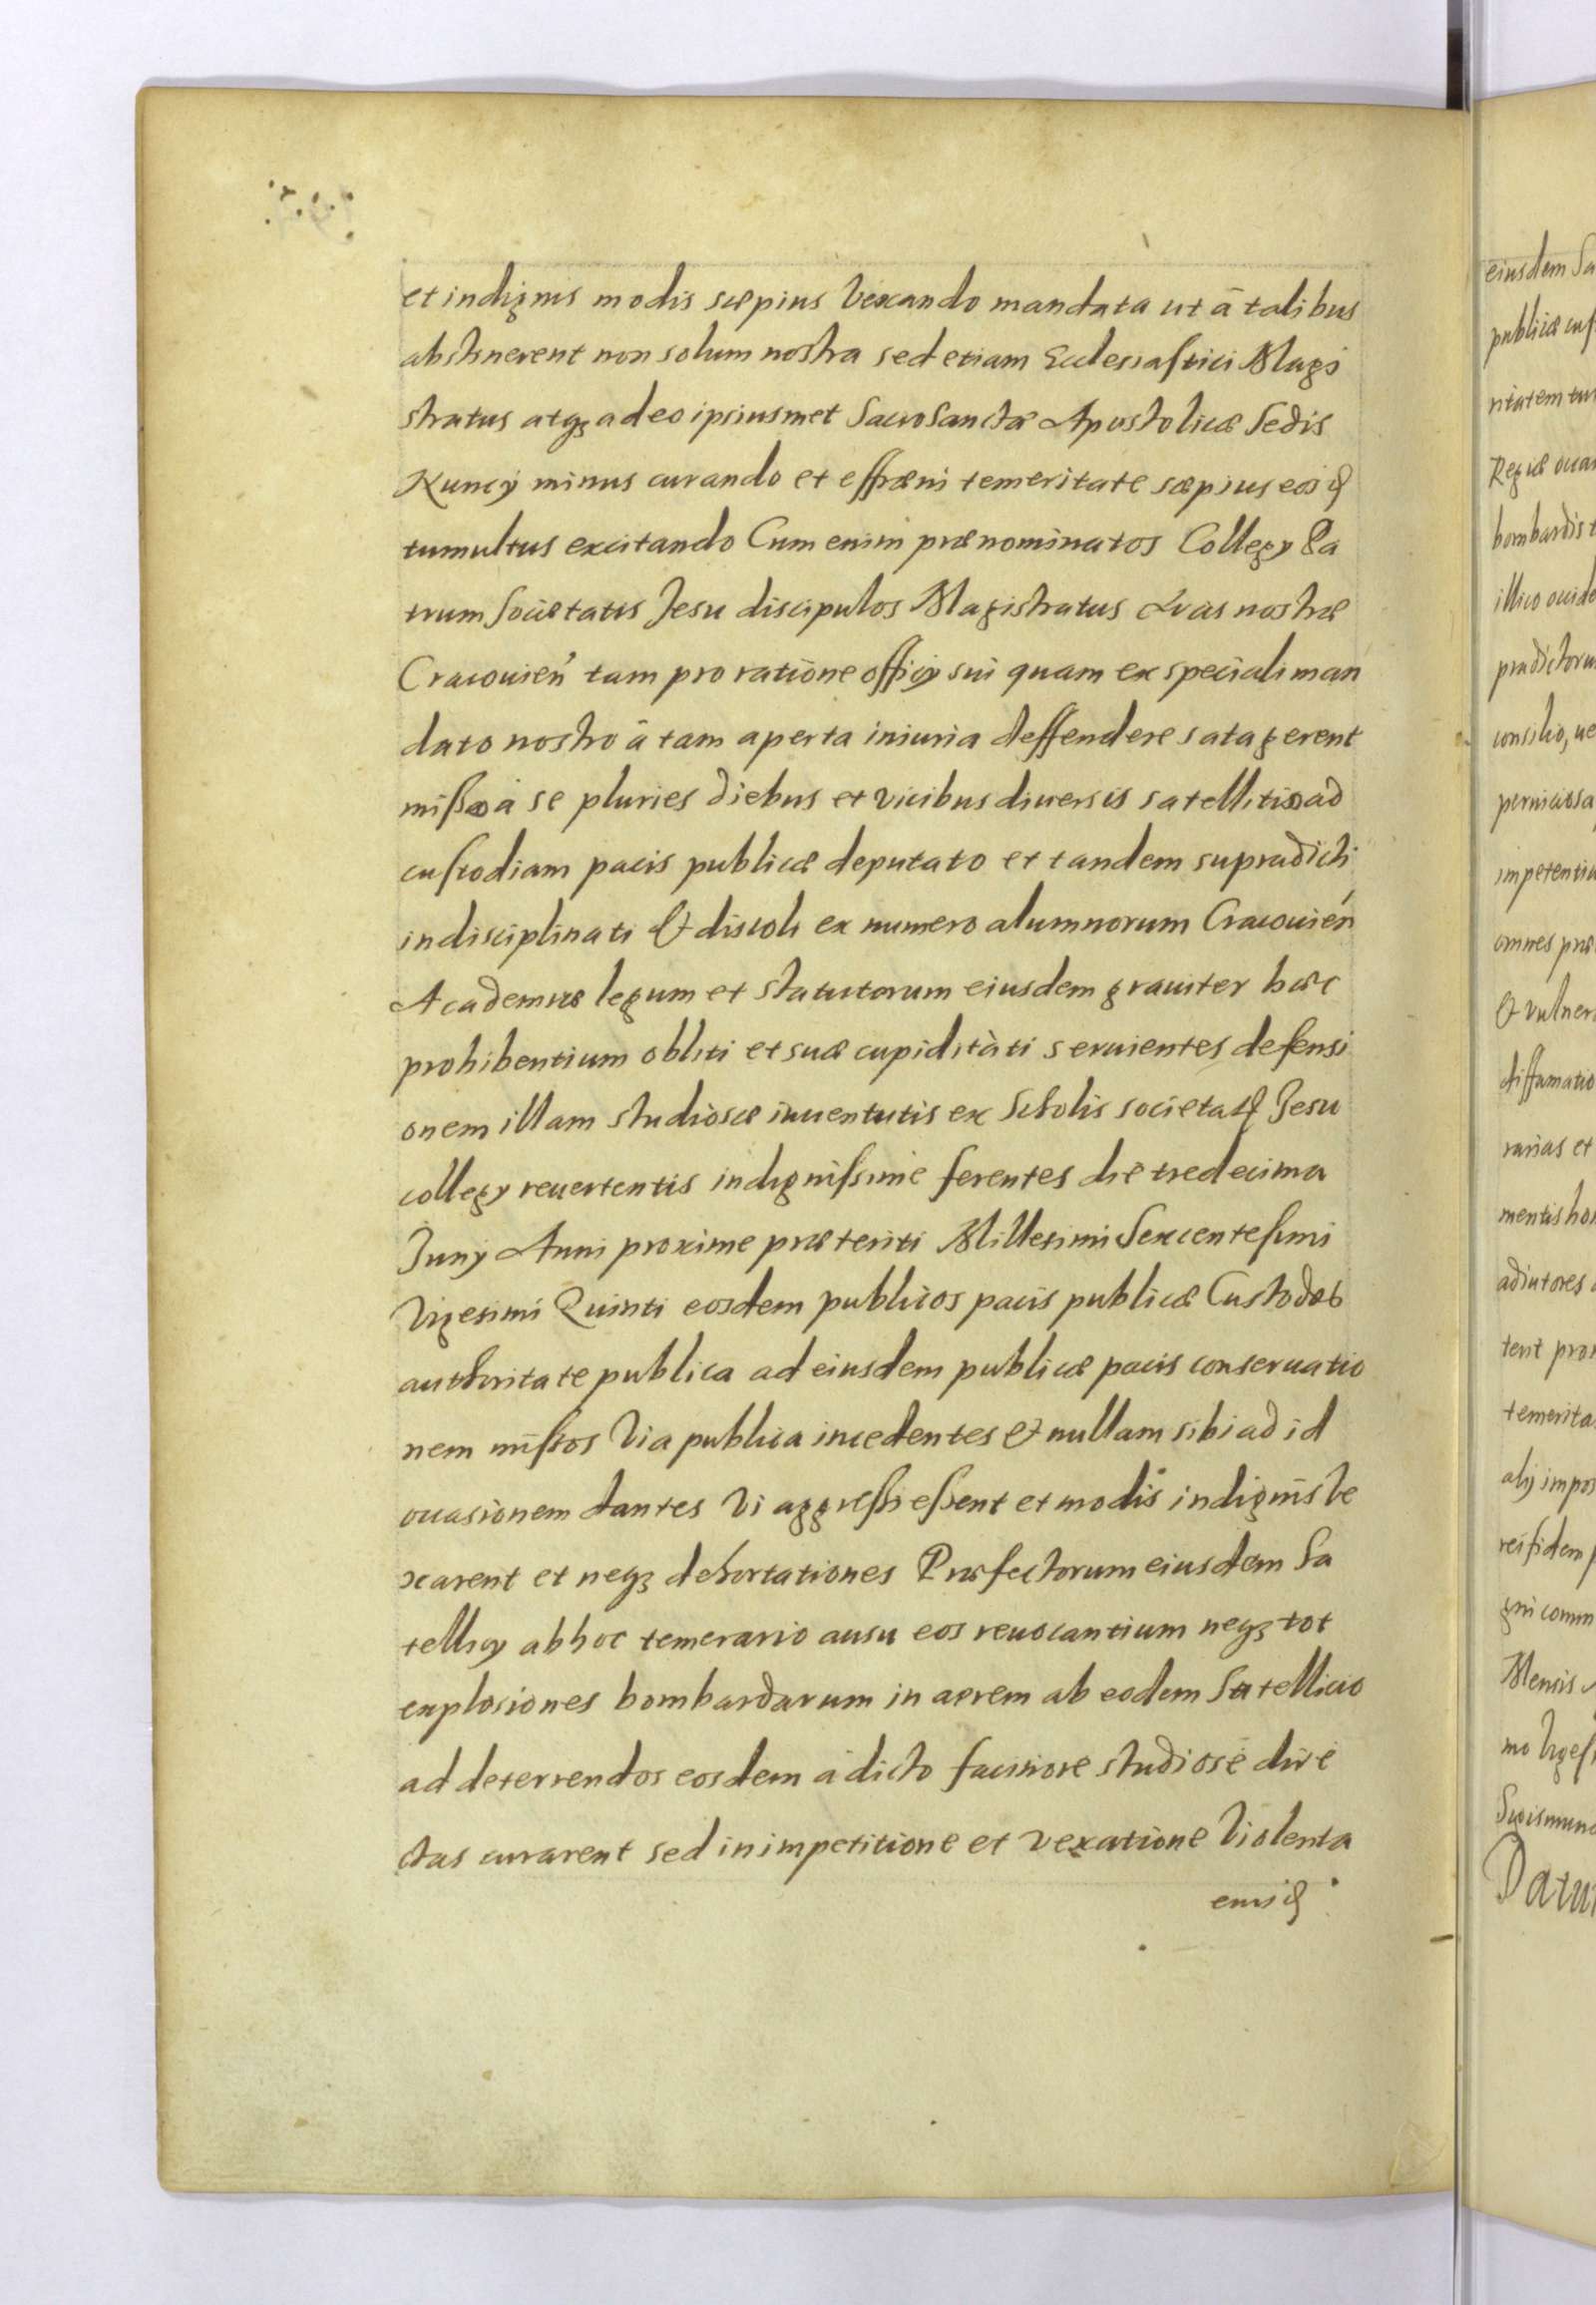 et indignis modis sæpius vexando mandata ut à talibus
abstinerent non solum nostra sed etiam Ecclesiastici Magi
stratus atqꝫ adeo ipsiusmet SacroSanctæ Apostolicæ Sedis
Nuncÿ minus curando et effræni temeritate sæpius eosꝗ
tumultus excitando Cum enim prænominatos Collegÿ Pa
trum Societatis Jesu discipulos Magistratus Arcis nostræ
Cracouień tam pro ratione officÿ sui quam ex speciali man
dato nostro à tam aperta iniuria deffendere satagerent
misso à se pluries diebus et vicibus diuersis satellitio ad
custodiam pacis publicæ deputato et tandem supradicti
indisciplinati & discoli ex numero alumnorum Cracouień
Academiæ legum et statutorum eiusdem grauiter hæc
prohibentium obliti et suæ cupiditàti seruientes defensi
onem illam studiosæ iuuentutis ex Scholis societatꝭ Jesu
collegÿ reuertentis indignissime ferentes die tredecima
Junÿ Anni proxime præteriti Millesimi Sexcentesimi
Vigesimi Quinti eosdem publicos pacis publicæ Custodes
authoritate publica ad eiusdem publicæ pacis conseruatio
nem missos Via publica incedentes & nullam sibi ad id
occasionem dantes Vi aggressi essent et modis indignis ve
xarent et neqꝫ dehortationes Præfectorum eiusdem Sa
tellicÿ ab hoc temerario ausu eos reuocantium neqꝫ tot
explosiones bombardarum in aerem ab eodem Satellicio
ad deterrendos eosdem à dicto facinore studiosè dire
ctas curarent sed in impetitione et vexatione Violenta
eiusꝗ
eiusdem Sa
publicæ cus
ritatem tu
Regiæ
bombardis t
illico
prædictoru
consilio, ue
perniciosa
impetentiu
omnes præ
& vulner
diffamatio
varias et
mentis ho
adiutores
tent pro
temerita
alÿ impos
rei fidem
gni comm
Mensis
mo Viges
Sigismund
Datu